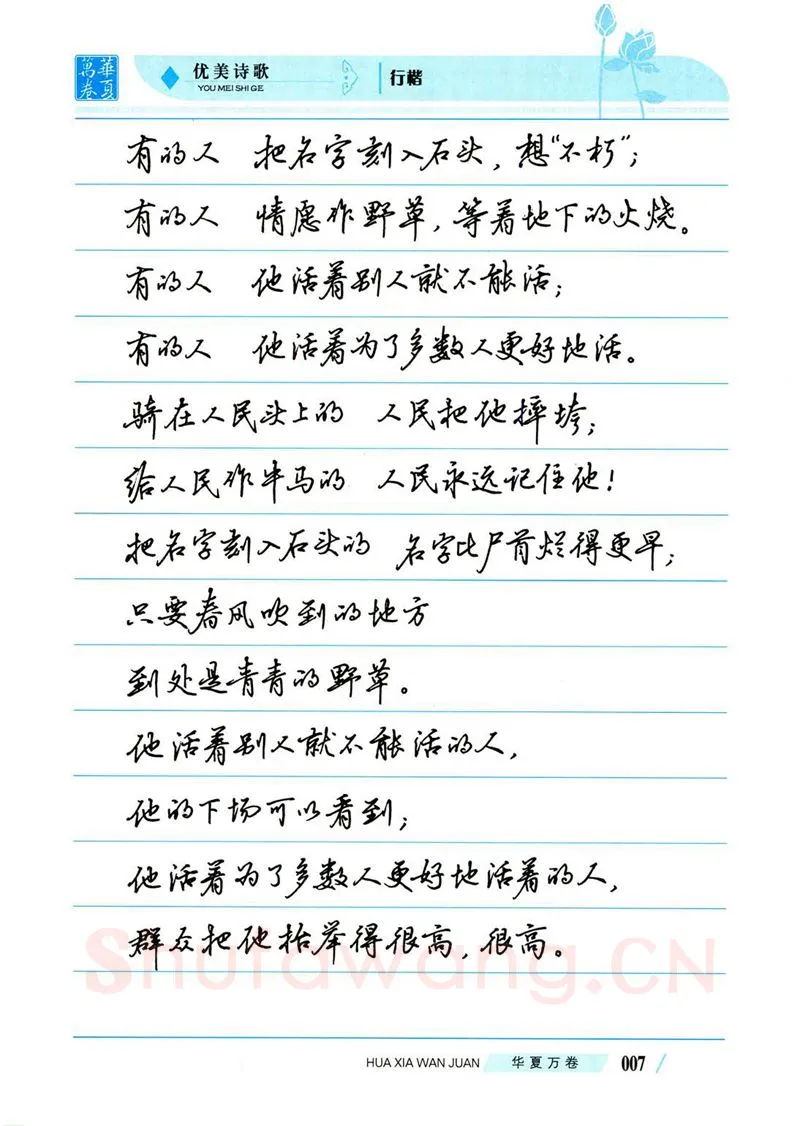 華夏萬卷
优美诗歌
YOU MEI SHI GE
行楷
有的人 把名字刻入石头，想“不朽”；
有的人 情愿作野草，等着地下的火烧。
有的人 他活着别人就不能活；
有的人 他活着为了多数人更好地活。
骑在人民头上的 人民把他摔垮；
给人民作牛马的 人民永远记住他！
把名字刻入石头的 名字比尸首烂得更早；
只要春风吹到的地方
到处是青青的野草。
他活着别人就不能活的人，
他的下场可以看到；
他活着为了多数人更好地活着的人，
群众把他抬举得很高，很高。
Shufawang.CN
HUA XIA WAN JUAN 华夏万卷 007